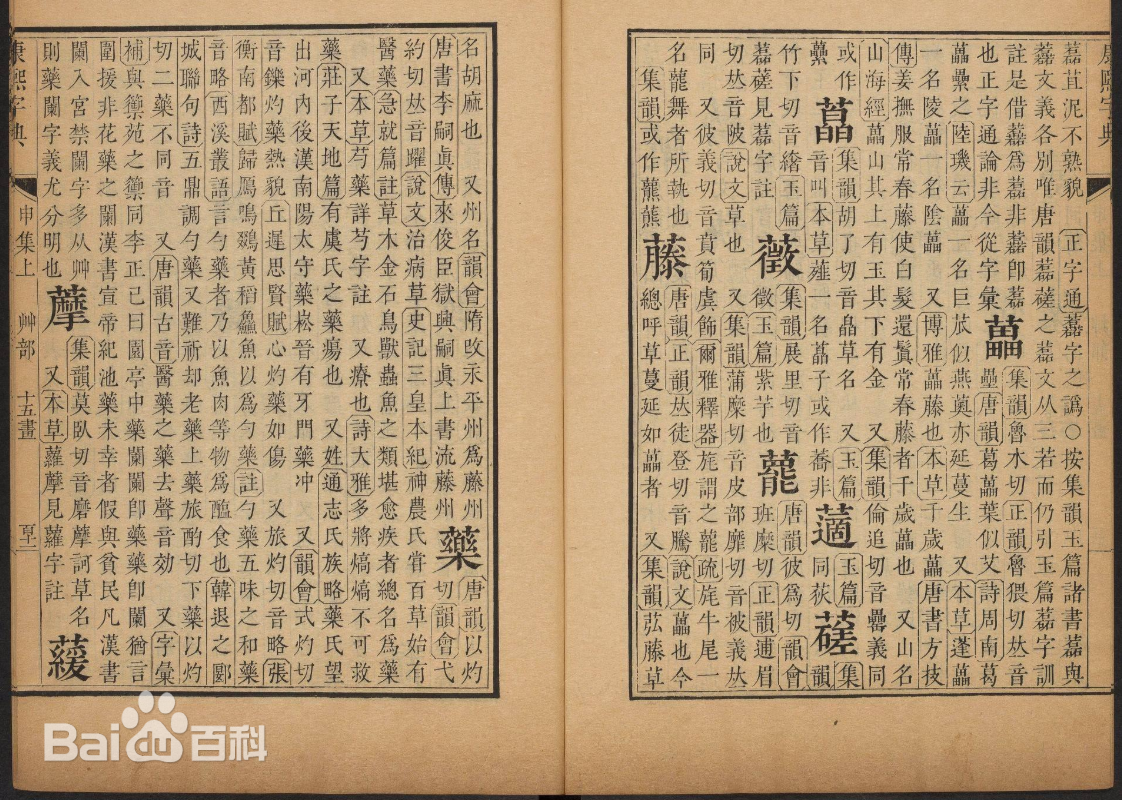 康熙字典
藞苴泥不熟貌 正字通藞字之譌○按集韻玉篇諸書藞與
文義各別唯唐韻藞磋之藞文从三若而仍引玉篇藞字訓
註是借爲藞非卽藞
也正字通論非今從字彙
藟
集韻魯水切正韻魯猥切𠀤音
壘唐韻葛藟葉似艾詩周南葛
藟纍之陸璣云藟一名巨苽似燕薁亦延蔓生 又本草蓬藟
一名陵藟一名陰藟 又博雅藟藤也本草千歲藟唐書方技
傳姜撫服常春藤使白髮還鬒常春藤者千歲藟也 又山名
山海經藟山其上有玉其下有金 又集韻倫追切音纍義同
或作
虆
藠
集韻胡了切音皛草名 又玉篇
音叫本草薤一名藠子或作蕎非
藡
玉篇
同荻
蒫
集
韻
竹下切音縿玉篇
藞磋見藞字註
薇
集韻展里切音
徵玉篇紫芋也
藣
唐韻彼爲切韻會
班糜切正韻逋眉
切𠀤音陂說文草也 又集韻蒲糜切音皮部靡切音被義𠀤
同 又彼義切音賁筍虡飾爾雅釋器旄謂之藣疏旄牛尾一
名藣舞者所執也
集韻或作
藤
唐韻正韻𠀤徒登切音騰說文藟也今
總呼草蔓延如藟者 又集韻弦藤草
名胡麻也 又州名韻會隋改永平州爲藤州
唐書李嗣眞傳來俊臣獄興嗣眞上書流藤州
藥
唐韻以灼
切韻會弋
約切𠀤音躍說文治病草史記三皇本紀神農氏嘗百草始有
醫藥急就篇註草木金石鳥獸蟲魚之類堪愈疾者總名爲藥
又本草芍藥詳芍字註 又療也詩大雅多將熇熇不可救
藥莊子天地篇有虞氏之藥瘍也 又姓通志氏族略藥氏望
出河內後漢南陽太守藥崧晉有牙門藥冲 又韻會式灼切
音鑠灼藥熱貌丘遲思賢賦心灼藥如傷 又旅灼切音略張
衡南都賦歸鴈鳴鵽黃稻鱻魚以爲勺藥註勺藥五味之和藥
音略西溪叢語言勺藥者乃以魚肉等物爲醢食也韓退之郾
城聯句詩五鼎調勺藥又難祈却老藥上藥旅酌切下藥以灼
切二藥不同音 又唐韻古音醫藥之藥去聲音効 又字彙
補與籞苑之籞同李正己曰園亭中藥闌闌卽藥藥卽闌猶言
圍援非花藥之闌漢書宣帝紀池藥未幸者假與貧民凡漢書
闌入宮禁闌字多从艸
則藥闌字義尤分明也
藦
集韻莫臥切音磨藦訶草名
又本草蘿藦見蘿字註
康熙字典 申集上 艸部 十五畫
Bai du 百科